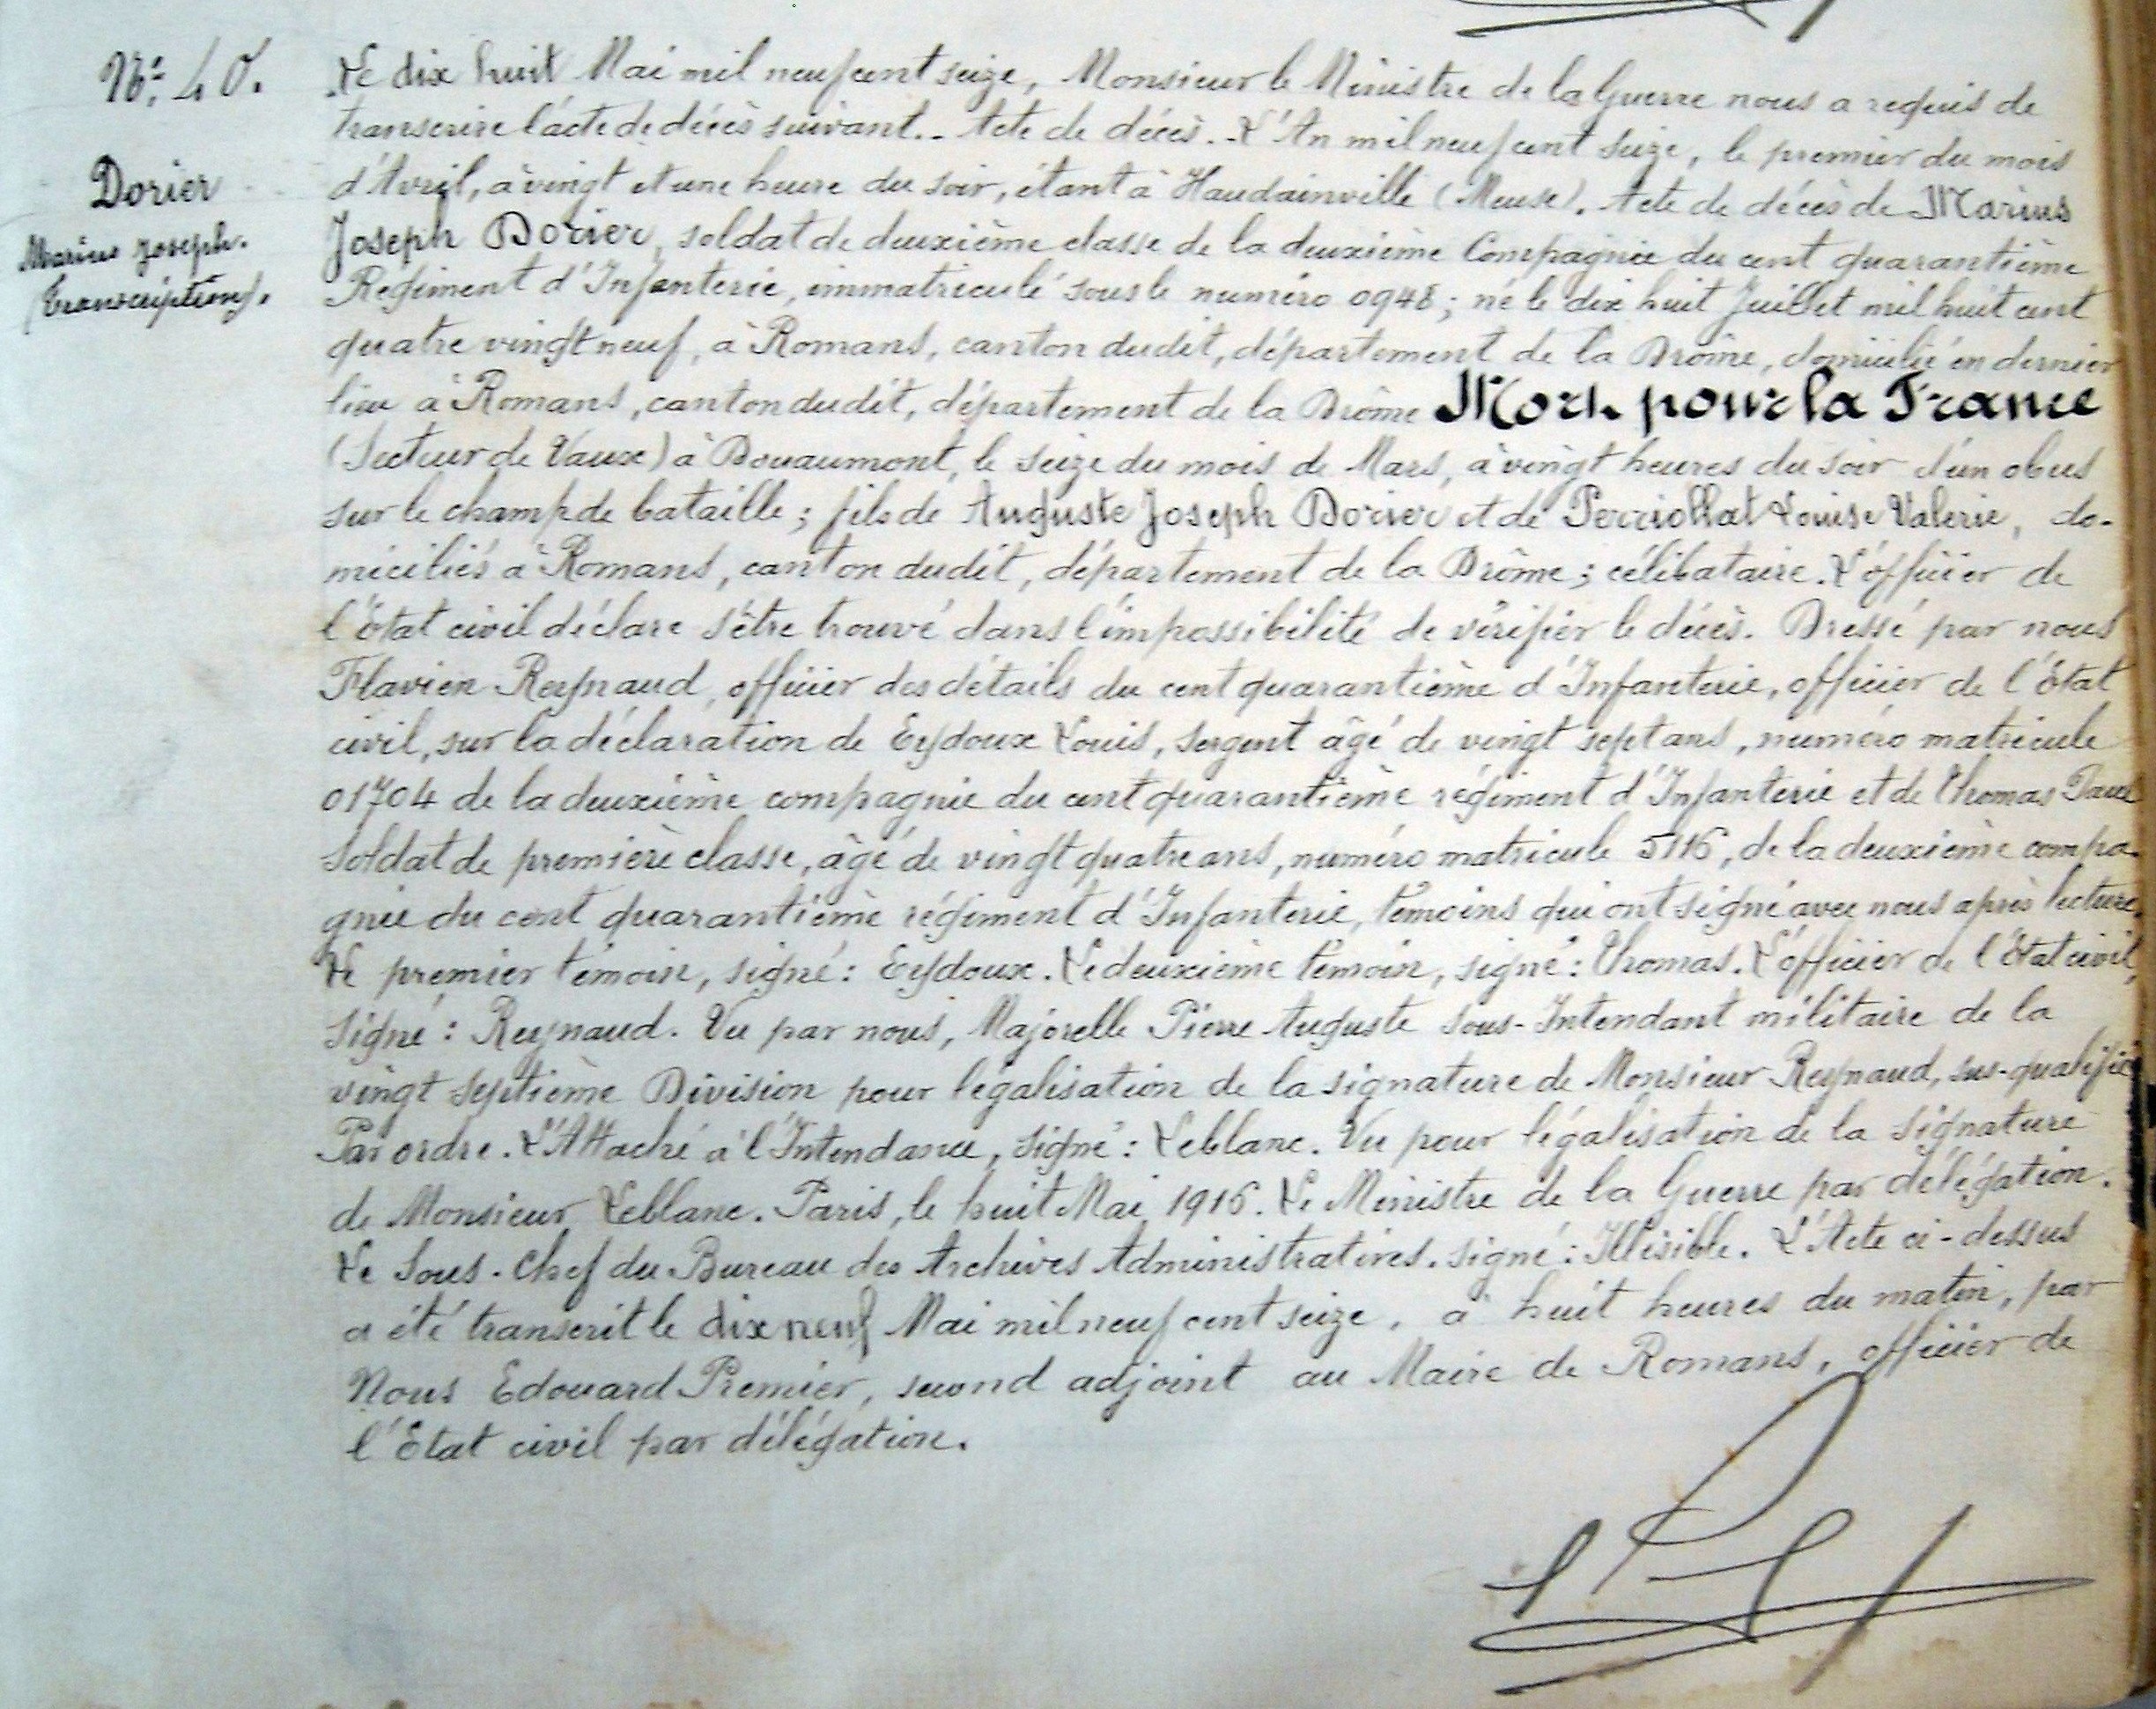 N° 40.
Dorier
Marius Joseph.
(Transcription).
Le dix huit Mai mil neuf cent seize, Monsieur le Ministre de la Guerre nous a requis de
transcrire l'acte de décès suivant.- Acte de décès.- L'An mil neuf cent seize, le premier du mois
d'Avril, à vingt et une heure du soir, étant à Haudainville (Meuse). Acte de décès de Marius
Joseph Dorier, soldat de deuxième classe de la deuxième Compagnie du cent quarantième
Régiment d'Infanterie, immatriculé sous le numéro 0948; né le dix huit Juillet mil huit cent
quatre vingt neuf, à Romans, canton dudit, département de la Drôme, domicilié en dernier
lieu à Romans, canton dudit, département de la Drôme Mort pour la France
(Secteur de Vaux) à Douaumont, le seize du mois de Mars, à vingt heures du soir d'un obus
sur le champ de bataille; fils de Auguste Joseph Dorier et de Perriollat Louise Valerie, do-
miciliés à Romans, canton dudit, département de la Drôme; célibataire. L'officier de
l'Etat civil déclare s'être trouvé dans l'impossibilité de vérifier le décès. Dressé par nous
Flavien Reynaud, officier des détails du cent quarantième d'Infanterie, officier de l'Etat
civil, sur la déclaration de Eydoux Louis, sergent âgé de vingt sept ans, numéro matricule
01704 de la deuxième compagnie du cent quarantième régiment d'Infanterie et de Thomas Paul
soldat de première classe, âgé de vingt quatre ans, numéro matricule 5116, de la deuxième compa-
gnie du cent quarantième régiment d'Infanterie, témoins qui ont signé avec nous après lecture.
Le premier témoin, signé: Eydoux. Le deuxième témoin, signé: Thomas. L'officier de l'Etat civil,
signé: Reynaud. Vu par nous, Majorelle Pierre Auguste sous-Intendant militaire de la
vingt septième Division pour légalisation de la signature de Monsieur Reynaud, sus-qualifié
Par ordre. L'Attaché à l'Intendance, signé: Leblanc. Vu pour légalisation de la signature
de Monsieur Leblanc. Paris, le huit Mai 1916. Le Ministre de la Guerre par délégation.
Le Sous-Chef du Bureau des Archives Administratives. signé: Illisible. L'Acte ci-dessus
a été transcrit le dix neuf Mai mil neuf cent seize, à huit heures du matin, par
Nous Edouard Premier, second adjoint au Maire de Romans, officier de
l'Etat civil par délégation.